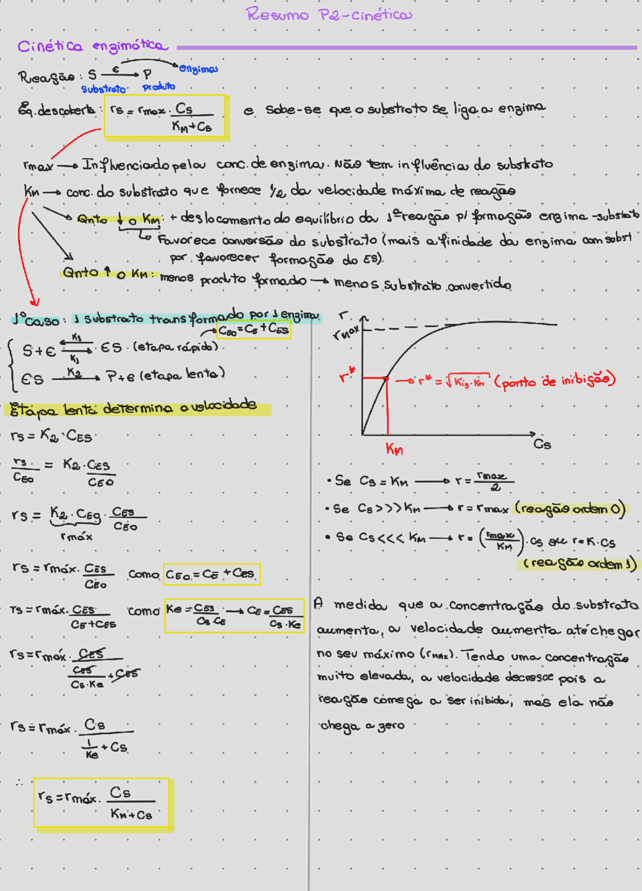 Resumo P2-cinética
Cinética enzimática
Reação: S —e→ P
enzima
substrato produto
Eq. descoberta: rs = rmax . Cs / (KM + Cs) e sabe-se que o substrato se liga a enzima
rmax → Influenciado pela conc. de enzima. Não tem influência do substrato
KM → conc. do substrato que fornece 1/2 da velocidade máxima de reação
Qnto ↓ o KM: + deslocamento do equilíbrio da 1ª reação p/ formação enzima-substrato
↳ Favorece conversão do substrato (mais afinidade da enzima com subst
por favorecer formação do ES).
Qnto ↑ o KM: menos produto formado → menos substrato convertido
1º Caso: 1 substrato transformado por 1 enzima
CEO = CE + CES
S + E ⇌ ES (etapa rápida)
K1
K1
ES —K2→ P + e (etapa lenta)
Etapa lenta determina a velocidade
rs = K2 . CES
rs / CEO = K2 . CES / CEO
rs = K2 . CEO . CES / CEO
rmáx
rs = rmáx . CES / CEO como CEO = CE + CES
rs = rmáx . CES / (CE + CES) como Ke = CES / (Cs . CE) → CE = CES / (Cs . Ke)
rs = rmáx . CES / (CES / (Cs . Ke) + CES)
rs = rmáx . Cs / (1/Ke + Cs)
∴ rs = rmáx . Cs / (KM + Cs)
r
rmax
r* → r* = √(Kis . KM) (ponto de inibição)
KM
Cs
• Se Cs = KM → r = rmax / 2
• Se Cs >>> KM → r = rmax (reação ordem 0)
• Se Cs <<< KM → r = (rmax / KM) . Cs ou r = K . Cs
(reação ordem 1)
A medida que a concentração do substrato
aumenta, a velocidade aumenta até chegar
no seu máximo (rmax). Tendo uma concentração
muito elevada, a velocidade decresce pois a
reação começa a ser inibida, mas ela não
chega a zero